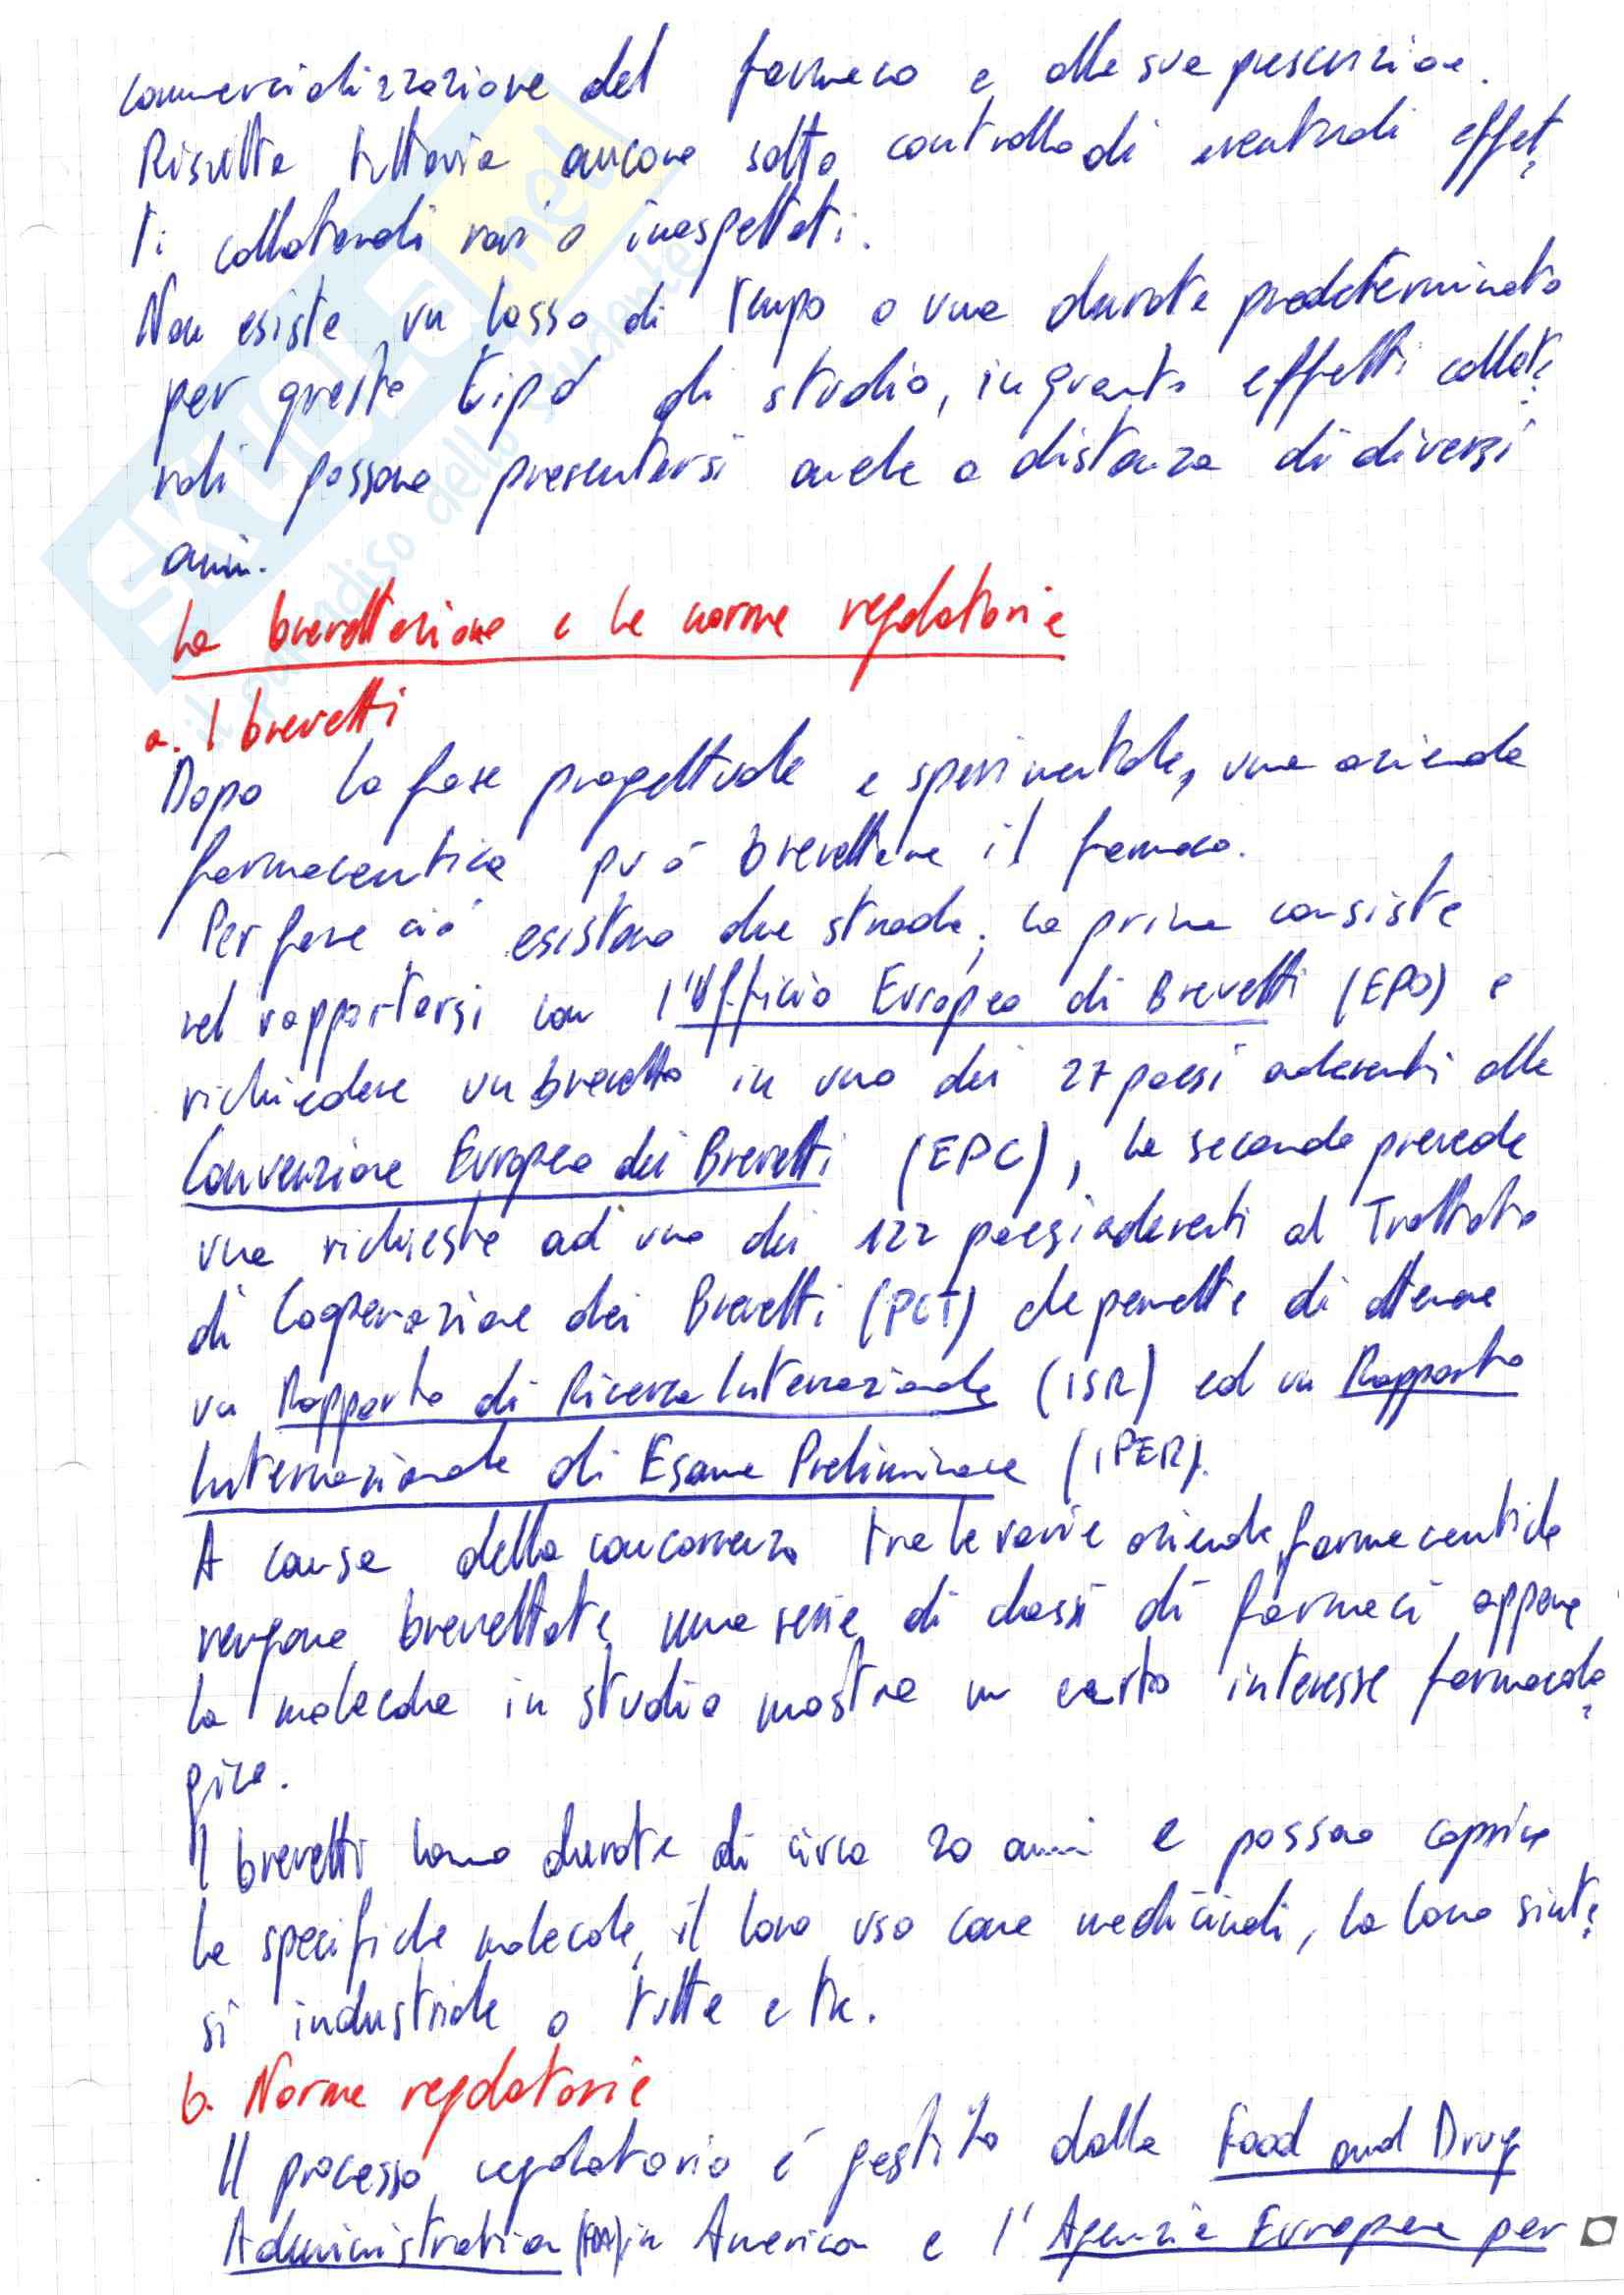 commercializzazione del farmaco e alla sua prescrizione.
Risulta tuttavia ancora sotto controllo di eventuali effet
ti collaterali rari o inaspettati.
Non esiste un lasso di tempo o una durata predeterminata
per questo tipo di studio, in quanto effetti collate
rali possono presentarsi anche a distanza di diversi
anni.
La brevettazione e le norme regolatorie
a. I brevetti
Dopo la fase progettuale e sperimentale, una azienda
farmaceutica può brevettare il farmaco.
Per fare ciò esistono due strade, la prima consiste
nel rapportarsi con l'Ufficio Europeo di Brevetti (EPO) e
richiedere un brevetto in uno dei 27 paesi aderenti alla
Convenzione Europea dei Brevetti (EPC), la seconda prevede
una richiesta ad uno dei 122 paesi aderenti al Trattato
di Cooperazione dei Brevetti (PCT) che permette di ottenere
un Rapporto di Ricerca Internazionale (ISR) ed un Rapporto
Internazionale di Esame Preliminare (IPER).
A causa della concorrenza tra le varie aziende farmaceutiche
vengono brevettate una serie di classi di farmaci appena
la molecola in studio mostra un certo interesse farmacolo
gico.
I brevetti hanno durata di circa 20 anni e possono coprire
le specifiche molecole, il loro uso come medicinali, la loro sinte
si industriale o tutte e tre.
b. Norme regolatorie
Il processo regolatorio è gestito dalla Food and Drug
Administration (FDA) in America e l'Agenzia Europea per
SKUOLA.net
il paradiso dello studente